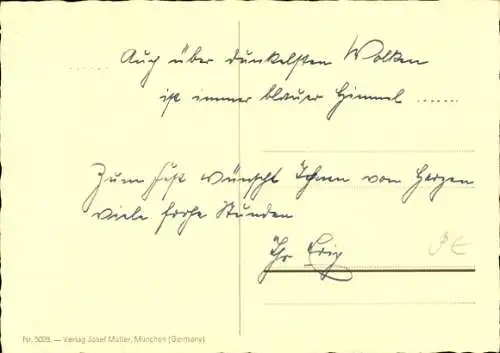 ...... Auch über dunkelsten Wolken
ist immer blauer Himmel ......
Zum Fest wünscht Ihnen von Herzen
viele frohe Stunden
Ihr Erig
Nr. 5028. — Verlag Josef Müller, München (Germany).